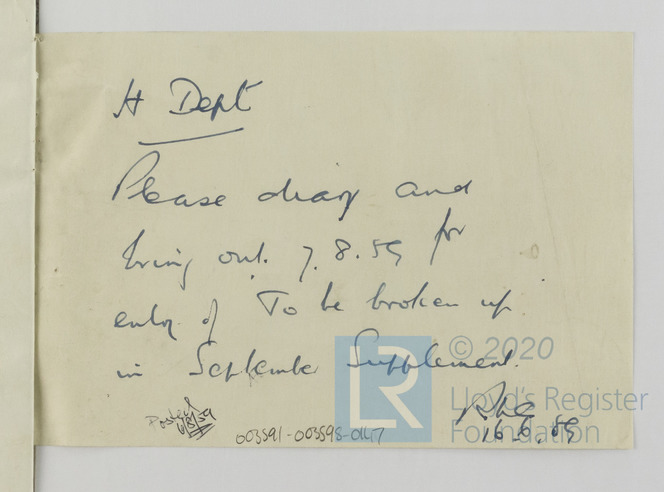 H Dept
Please diary and
bring out. 7.8.59 for
entry of 'To be broken up'
in September Supplement.
16.6.59
Posted
6/8/59
003591-003598-0147
LR
© 2020
Lloyd's Register
Foundation